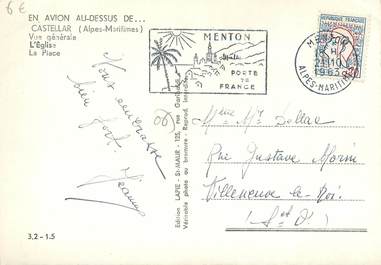 6€
EN AVION AU-DESSUS DE...
CASTELLAR (Alpes-Maritimes)
Vue générale
L'Église
La Place
MENTON
PORTE
DE
FRANCE
REPUBLIQUE FRANCAISE
MENTON
21-10
1963
ALPES-MARITIMES
0,20
Vous embrasse
bien fort.
Edition LAPIE - St-MAUR - 125, rue
Véritable photo au bromure - Reprod. interdite
Mme Mr
Rue Gustave Morin
Villeneuve-le-Roi
(S. et O.)
3,2 - 1.5